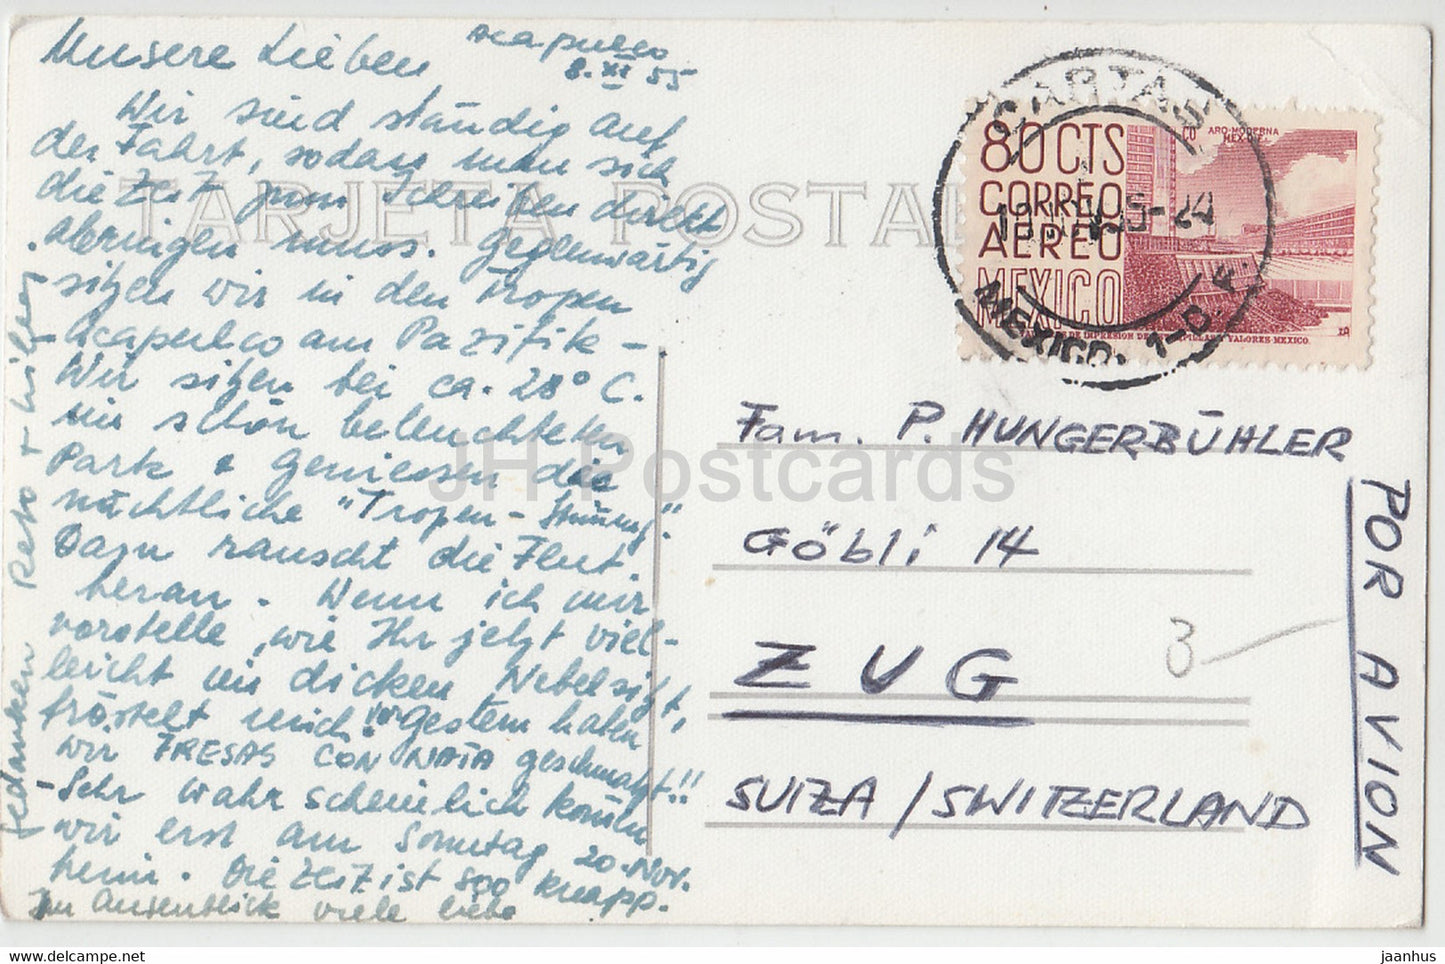 Acapulco
8. XI 55
Unsere Lieben
Wir sind ständig auf
der Fahrt, sodass man sich
die Zeit zum Schreiben direkt
abringen muss. Gegenwärtig
sitzen wir in den Tropen
Acapulco am Pazifik –
Wir sitzen bei ca. 28° C.
im schön beleuchteten
Park & geniessen die
nächtliche "Tropen-Stimmung".
Dazu rauscht die Flut
heran. Wenn ich mir
vorstelle, wie Ihr jetzt viel-
leicht im dicken Nebel sitzt,
fröstelt mich! Gestern haben
wir FRESAS CON NATA geschmaust!!
– Sehr wahrscheinlich können
wir erst am Sonntag 20. Nov.
heim. Die Zeit ist soo knapp.
Im Augenblick viele liebe
Gedanken Reto +
TARJETA POSTAL
80 CTS
CORREO
AEREO
MEXICO
ARQ-MODERNA
MEX-D.F.
TALLERES DE IMPRESION DE ESTAMPILLAS Y VALORES-MEXICO.
MEXICO. 1-D. F.
Fam. P. HUNGERBÜHLER
Göbli 14
ZUG
SUIZA / SWITZERLAND
POR AVION
3
JH Postcards
www.delcampe.net
jaanhus